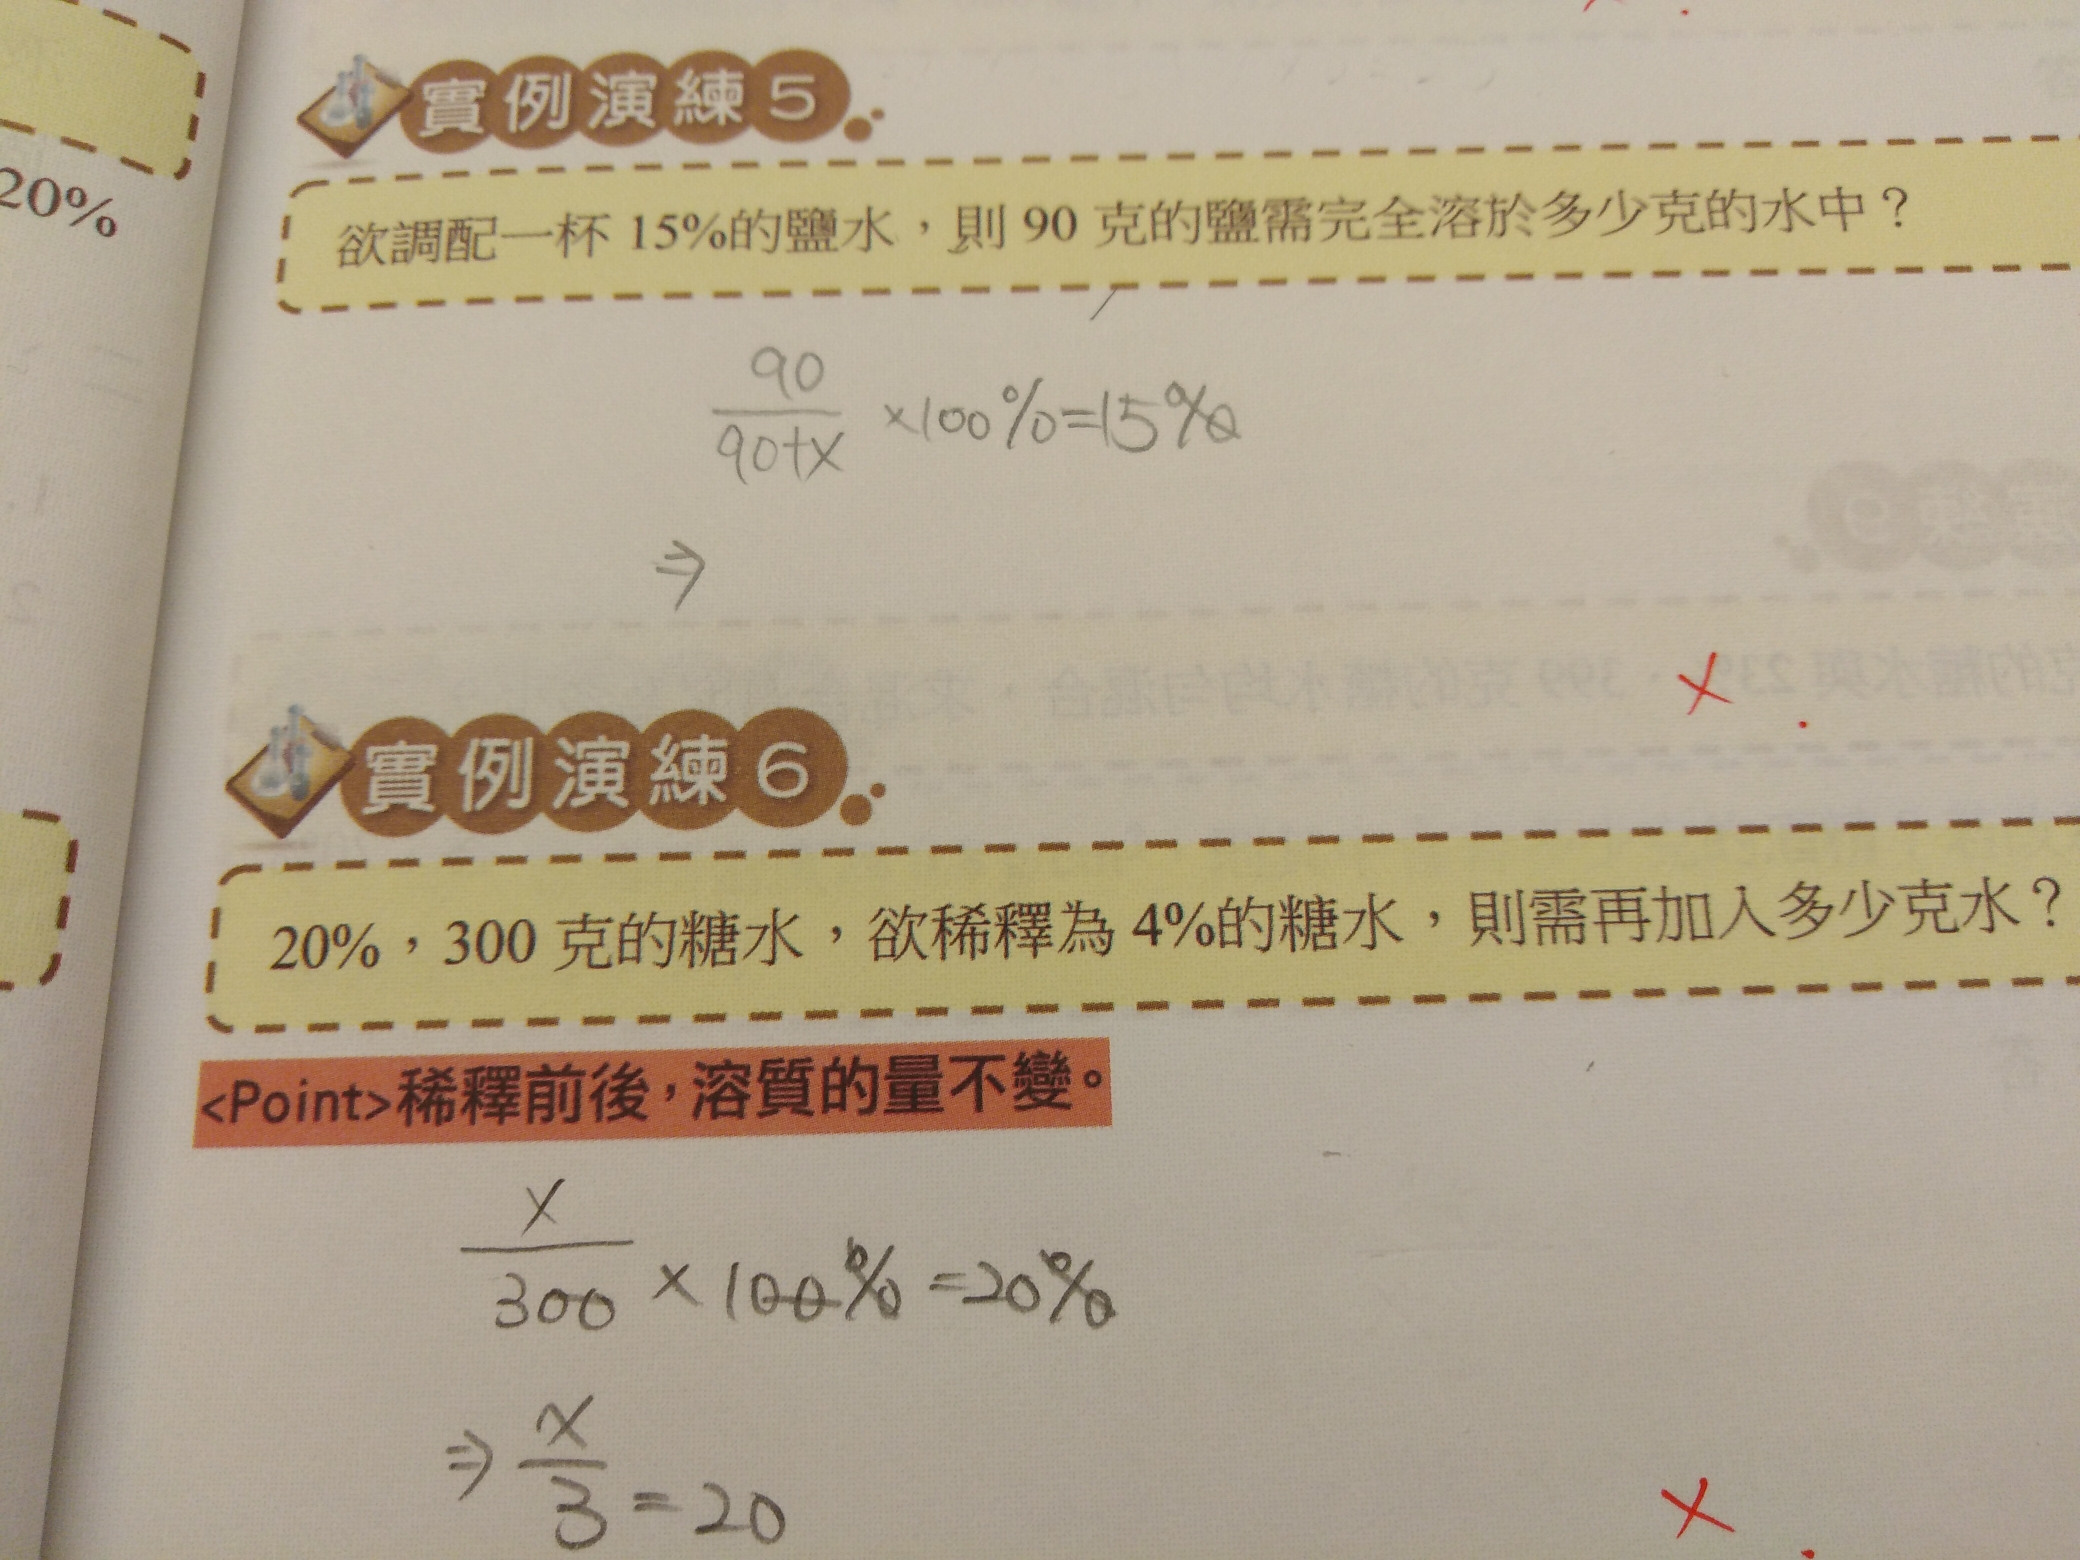 20%
實例演練5
欲調配一杯 15%的鹽水，則 90 克的鹽需完全溶於多少克的水中？
90
90+x ×100%=15%
⇒
實例演練6
20%，300 克的糖水，欲稀釋為 4%的糖水，則需再加入多少克水？
<Point>稀釋前後，溶質的量不變。
x
300 ×100%=20%
⇒ x
3 =20